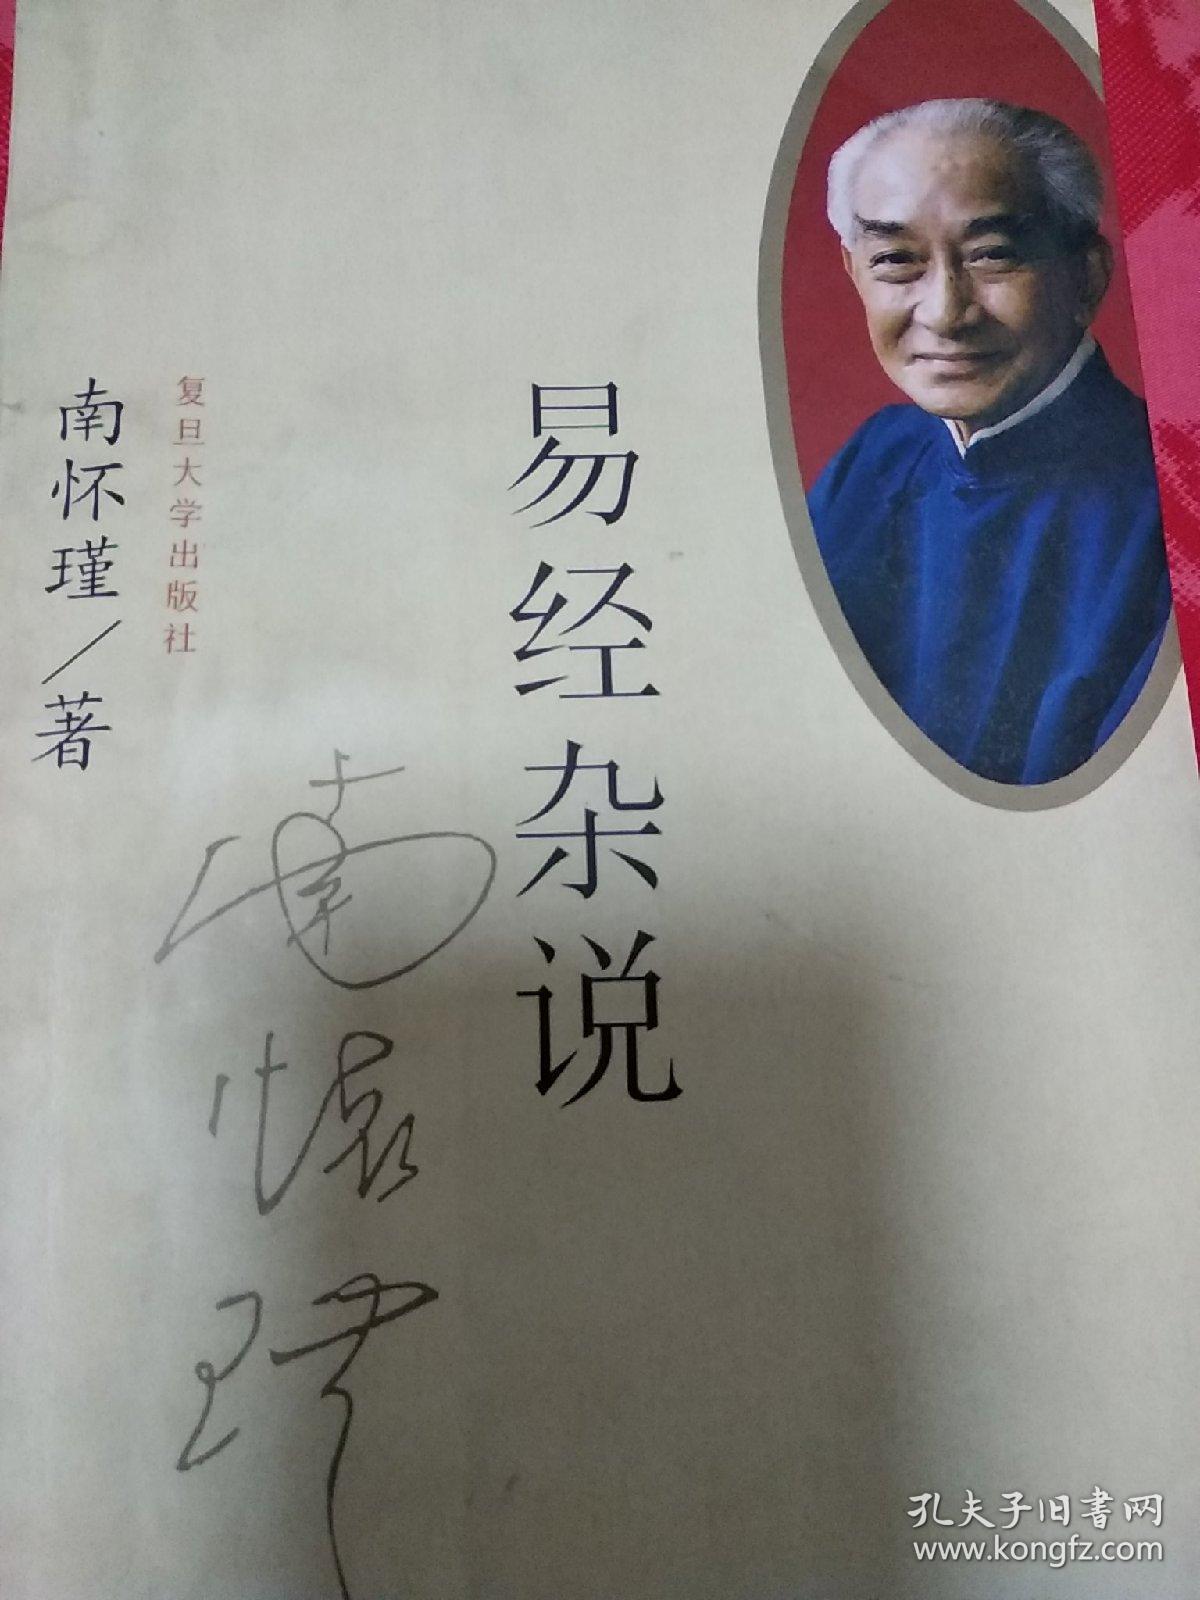 易经杂说
复旦大学出版社
南怀瑾／著
南懷瑾
孔夫子旧书网
www.kongfz.com